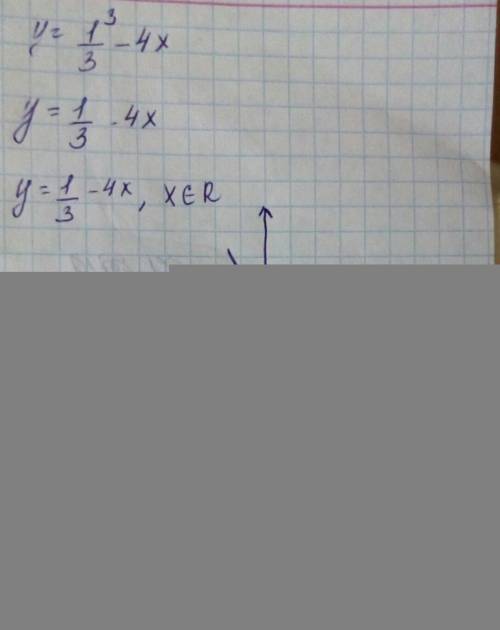 y = 1³/3 - 4x
y = 1/3 - 4x
y = 1/3 - 4x, x∈R